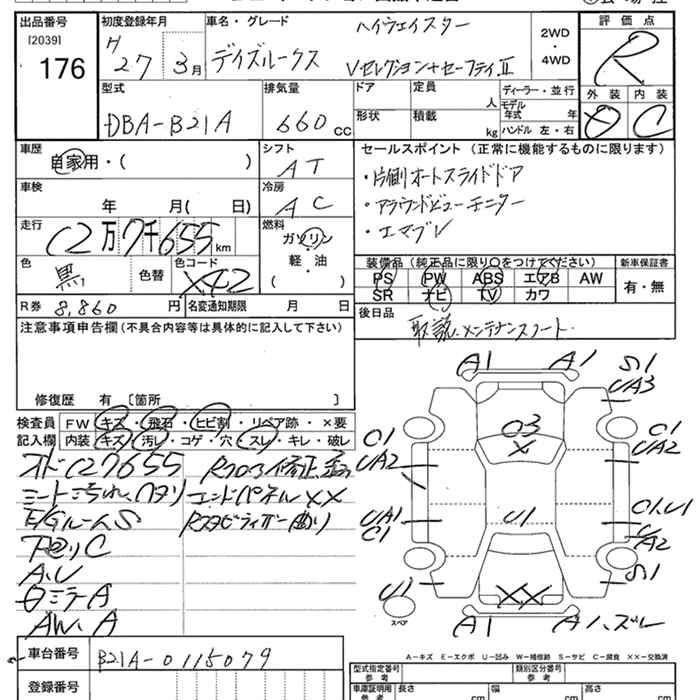 出品番号
[2039]
176
初度登録年月
H
27 3月
車名・グレード
ハイウェイスター
デイズルークス
Vセレクション+セーフティII
2WD
・
4WD
評価点
R
外装 内装
D C
型式
DBA-B21A
排気量
660 cc
ドア
定員
人
形状
積載
kg
ディーラー・並行
モデル年式 年
ハンドル 左・右
車歴
自家用・( )
シフト
AT
車検
年 月( 日)
冷房
AC
走行
C2万7千655 km
燃料
ガソリン
軽・油
( )
色
黒
色替
色コード
X42
R券 8,860 円
名変通知期限 月 日
セールスポイント(正常に機能するものに限ります)
・片側オートスライドドア
・アラウンドビューモニター
・エマブレ
装備品(純正品に限り〇をつけてください)
PS PW ABS エアB AW
SR ナビ TV カワ
新車保証書
有・無
後日品
取説、メンテナンスノート
注意事項申告欄(不具合内容等は具体的に記入して下さい)
修復歴 有 〔箇所 〕
検査員
記入欄
FW キズ・飛石・ヒビ割・リペア跡・×要
内装 キズ・汚レ・コゲ・穴・スレ・キレ・破レ
オドC27655
シート汚れ、ヘタリ
E/GルームS
下回りC
A.U
ミラーA
AW.A
Rフロア修正
エンドパネルXX
Rスタビライザー曲り
A1 A1
S1
UA3
O1
UA2
O3
X
O1
UA2
UA1
C1
U1
O1.U1
U
A2
S1
U1
スペア
XX
A1
A1ハズレ
A-キズ E-エクボ U-凹み W-補修跡 S-サビ C-腐食 ××-交換済
車台番号
B21A-0115079
登録番号
型式指定番号
参考
類別区分番号
参考
車庫証明用
参考
長さ cm
幅 cm
高さ cm